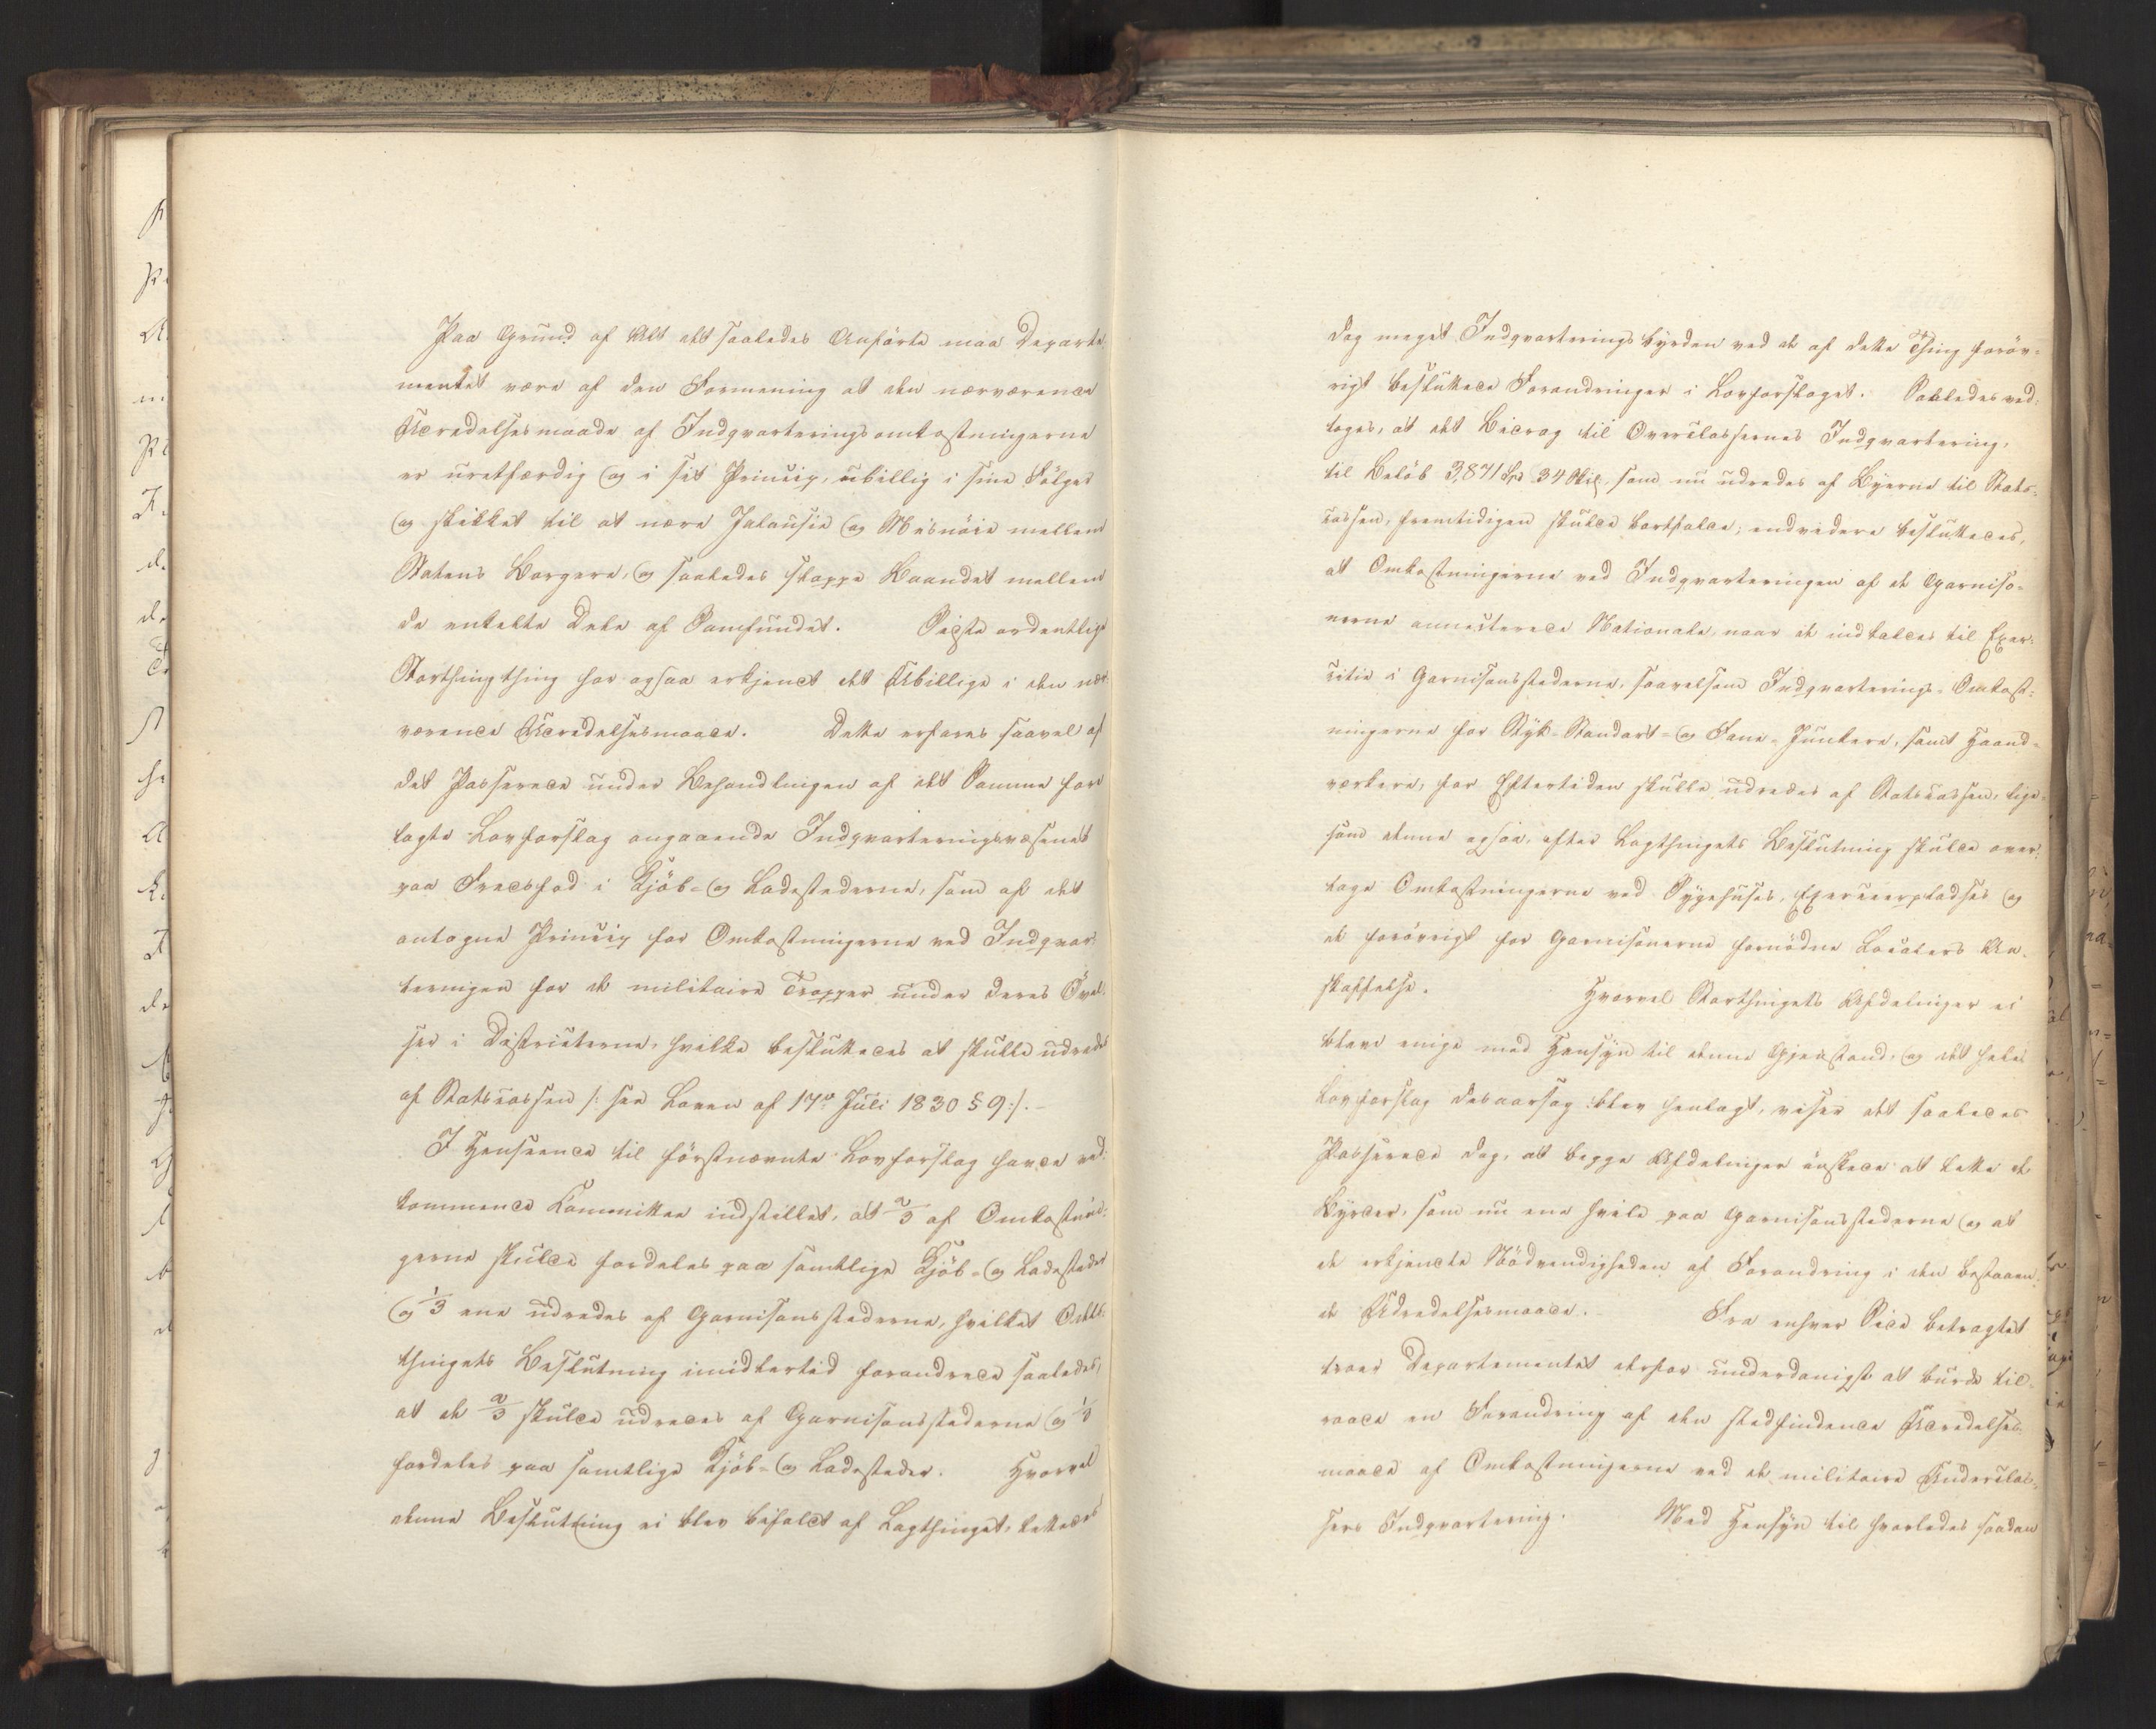 Paa Grund af Alt det saaledes Anførte maa Departe-
mentet være af den Formening at den nærværende
Udredelsesmaade af Indqvarteringsomkostningerne
er uretfærdig og i sit Princip, ubillig i sine Følger
og skikket til at nære Jalousie og Misnöie mellem
Statens Borgere, og saaledes slappe Baandet mellem
de enkelte Dele af Samfundet. Sidste ordentlige
Storthingthing har ogsaa erkjendt det Ubillige i den nær-
værende Udredelsesmaade. Dette erfares saavel af
det Passerede under Behandlingen af det Samme fore
lagte Lovforslag angaaende Indqvarteringsvæsenet
paa Fredsfod i Kjöb- og Ladestederne, som af det
antagne Princip for Omkostningerne ved Indqvar-
teringen for de militaire Tropper under deres Övel-
ser i Districterne, hvilke besluttedes at skulle udredes
af Statscassen /: see Loven af 17de Juli 1830 § 9 :/. -
I Henseende til förstnævnte Lovforslag havde ved-
kommende Committee indstillet, at 2/3 af Omkostnin-
gerne skulde fordeles paa samtlige Kjöb- og Ladesteder
og 1/3 ene udredes af Garnisonsstederne, hvilket Odels-
thingets Beslutning imidlertid forandrede saaledes,
at de 2/3 skulde udredes af Garnisonsstederne og 1/3
fordeles paa samtlige Kjöb- og Ladesteder. Hvorvel
denne Beslutning ei blev bifaldt af Lagthinget, lettedes
dog meget Indqvarteringsbyrden ved de af dette Thing foröv-
rigt besluttede Forandringer i Lovforslaget. Saaledes ved-
toges, at det Bidrag til Overclassernes Indqvartering,
til Belöb 3,871 Spd 34 Skil, som nu udredes af Byerne til Stats-
cassen, fremtidigen skulde bortfalde; endvidere besluttedes,
at Omkostningerne ved Indqvarteringen af de Garniso-
nerne annecterede Nationale, naar de indkaldes til Exer-
citie i Garnisonsstederne, saavelsom Indqvarterings-Omkost-
ningerne for Styk- Standart- og Fane-Junkere, samt Haand-
værkere, for Eftertiden skulle udredes af Statscassen, lige-
som denne ogsaa, efter Lagthingets Beslutning skulde over-
tage Omkostningerne ved Sygehuses, Exerceerpladses og
de forövrigt for Garnisonerne fornödne Localers An-
skaffelse. Hvorvel Storthingets Afdelinger ei
bleve enige med Hensyn til denne Gjenstand, og det hele
Lovforslag desaarsag blev henlagt, viser det saaledes
Passerede dog, at begge Afdelinger önskede at lette de
Byrder, som nu ene hvile paa Garnisonsstederne og at
de erkjendte Nödvendigheden af Forandring i den bestaaen-
de Udredelsesmaade. Fra enhver Side betragtet
troer Departementet derfor underdanigst at burde til-
raade en Forandring af den stedfindende Udredelses-
maade af Omkostningerne ved de militaire Underclas-
sers Indqvartering. Med Hensyn til hvorledes saadan